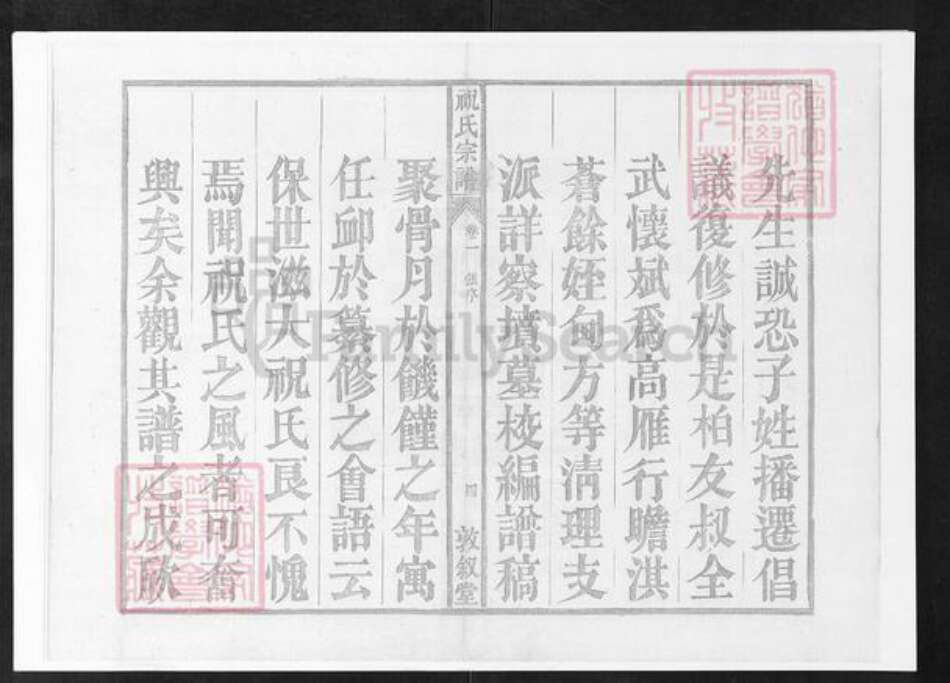 先生誠恐子姓播遷倡
議復修於是柏友叔全
武懷斌爲高雁行瞻淇
蒼餘姪甸方等淸理支
派詳察墳墓校編譜稿
祝氏宗譜 卷一 四 敦叙堂
聚骨月於饑饉之年寓
任卹於纂修之會語云
保世滋大祝氏良不愧
焉聞祝氏之風者可奮
興矣余觀其譜之成歟
FamilySearch